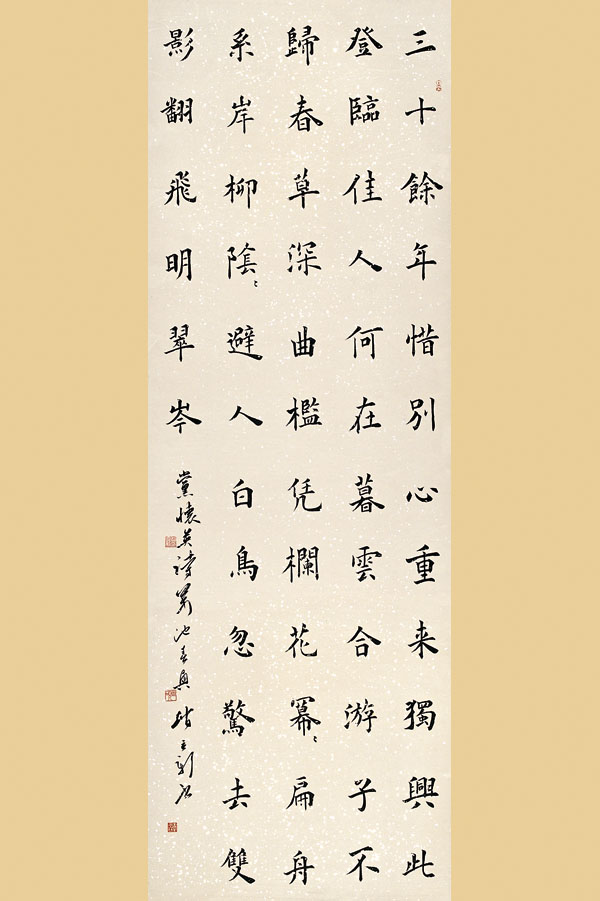 三十餘年惜別心重来獨興此
登臨佳人何在暮雲合游子不
歸春草深曲檻凭欄花冪〻扁舟
系岸柳陰〻避人白鳥忽驚去雙
影翻飛明翠岑
黨懷英詩